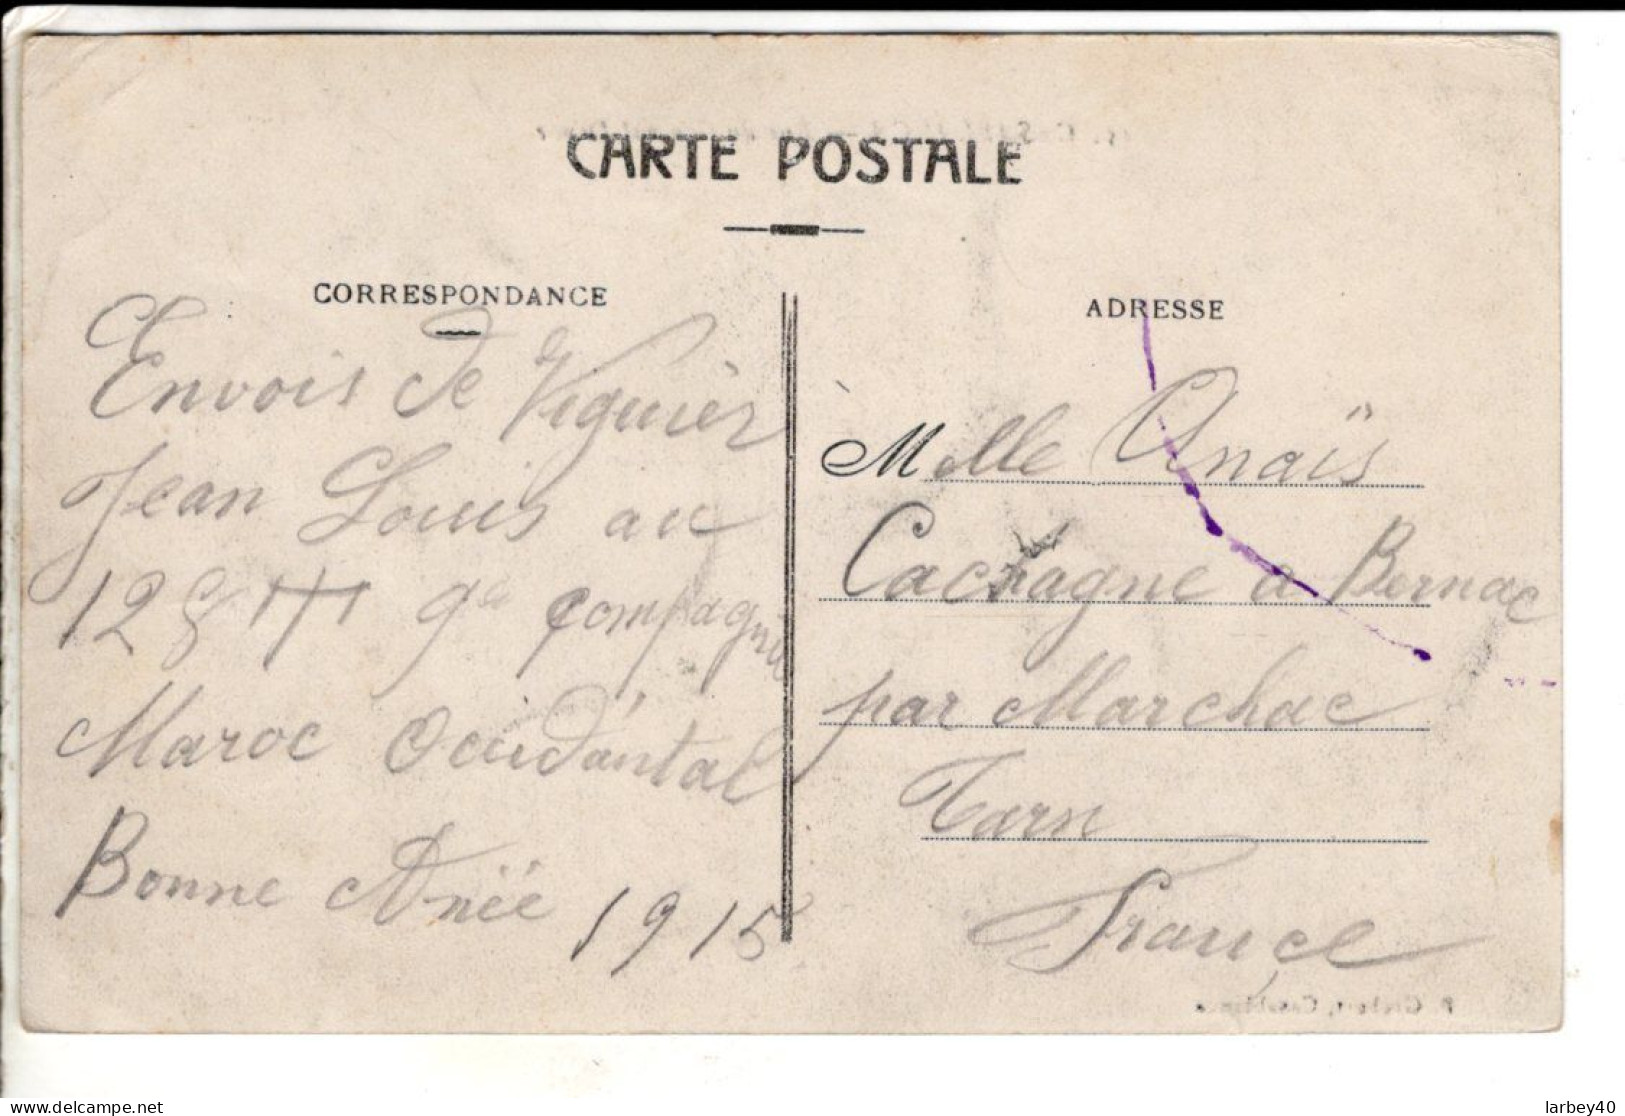 CARTE POSTALE
CORRESPONDANCE
Envois de Viguier
Jean Louis au
128 Tal 9e compagnie
Maroc Occidantal
Bonne Anëé 1915
ADRESSE
Melle Anaïs
Cachagne a Bernac
par Marchac
Tarn
France
delcampe.net
larbey40